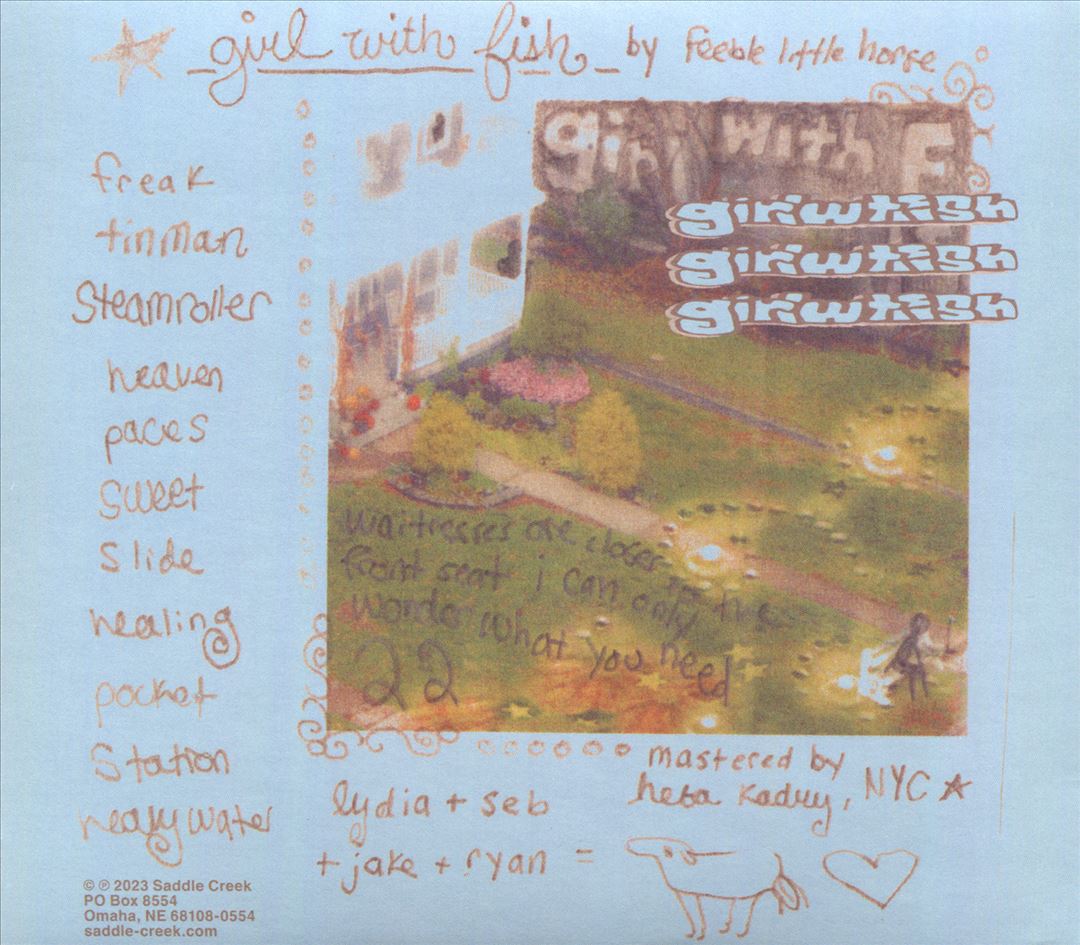 girl with fish by feeble little horse
yu
girl with F
girlwfish
girlwfish
girlwfish
freak
tinman
Steamroller
heaven
paces
sweet
slide
healing
pocket
Station
heavy water
waitresses are closer to the
front seat i can only
wonder what you need
22
mastered by
heba Kadry, NYC
lydia + seb
+ jake + ryan =
© ℗ 2023 Saddle Creek
PO Box 8554
Omaha, NE 68108-0554
saddle-creek.com